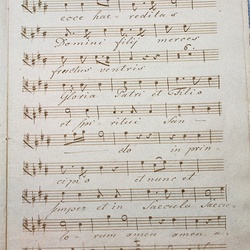 ecce hae - reditas
Domini filij merces
6.
fructus ventris
Gloria Patri et Filio
et Spi - ritui San -
do in prin -
cipio et nunc et
semper et in Saecula Saecu -
lo - rum amen amen a